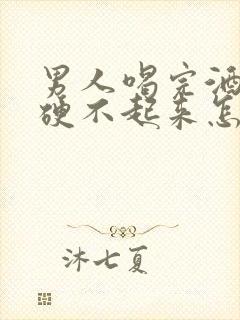 男人喝完酒
硬不起来怎
沐七夏